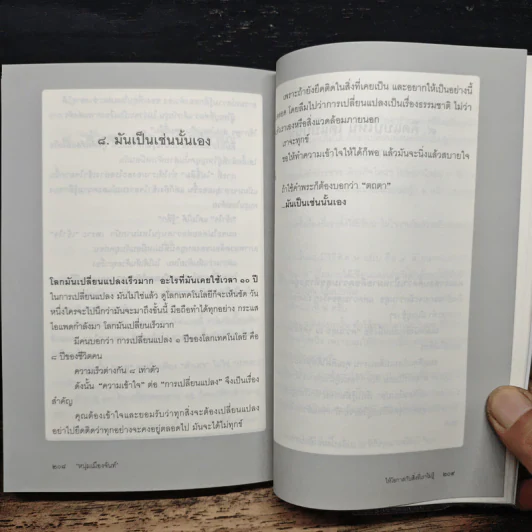 ๘. มันเป็นเช่นนั้นเอง
โลกมันเปลี่ยนแปลงเร็วมาก อะไรที่มันเคยใช้เวลา ๑๐ ปี
ในการเปลี่ยนแปลง มันไม่ใช่แล้ว ดูโลกเทคโนโลยีก็จะเห็นชัด วัน
หนึ่งใครจะไปนึกว่ามันจะมาถึงขั้นนี้ มือถือทำได้ทุกอย่าง กระแส
ไอแพดกำลังมา โลกมันเปลี่ยนเร็วมาก
มีคนบอกว่า การเปลี่ยนแปลง ๑ ปีของโลกเทคโนโลยี คือ
๘ ปีของชีวิตคน
ความเร็วต่างกัน ๘ เท่าตัว
ดังนั้น “ความเข้าใจ” ต่อ “การเปลี่ยนแปลง” จึงเป็นเรื่อง
สำคัญ
คุณต้องเข้าใจและยอมรับว่าทุกสิ่งจะต้องเปลี่ยนแปลง
อย่าไปยึดติดว่าทุกอย่างจะคงอยู่ตลอดไป มันจะได้ไม่ทุกข์
๒๐๘ “หนุ่มเมืองจันท์”
เพราะถ้ายังยึดติดในสิ่งที่เคยเป็น และอยากให้เป็นอย่างนี้
ตลอด โดยลืมไปว่าการเปลี่ยนแปลงเป็นเรื่องธรรมชาติ ไม่ว่า
ตัวเราเองหรือสิ่งแวดล้อมภายนอก
เราจะทุกข์
ขอให้ทำความเข้าใจให้ได้ก็พอ แล้วมันจะนิ่งแล้วสบายใจ
ถ้าใช้คำพระก็ต้องบอกว่า “ตถตา”
...มันเป็นเช่นนั้นเอง
๒๐๙